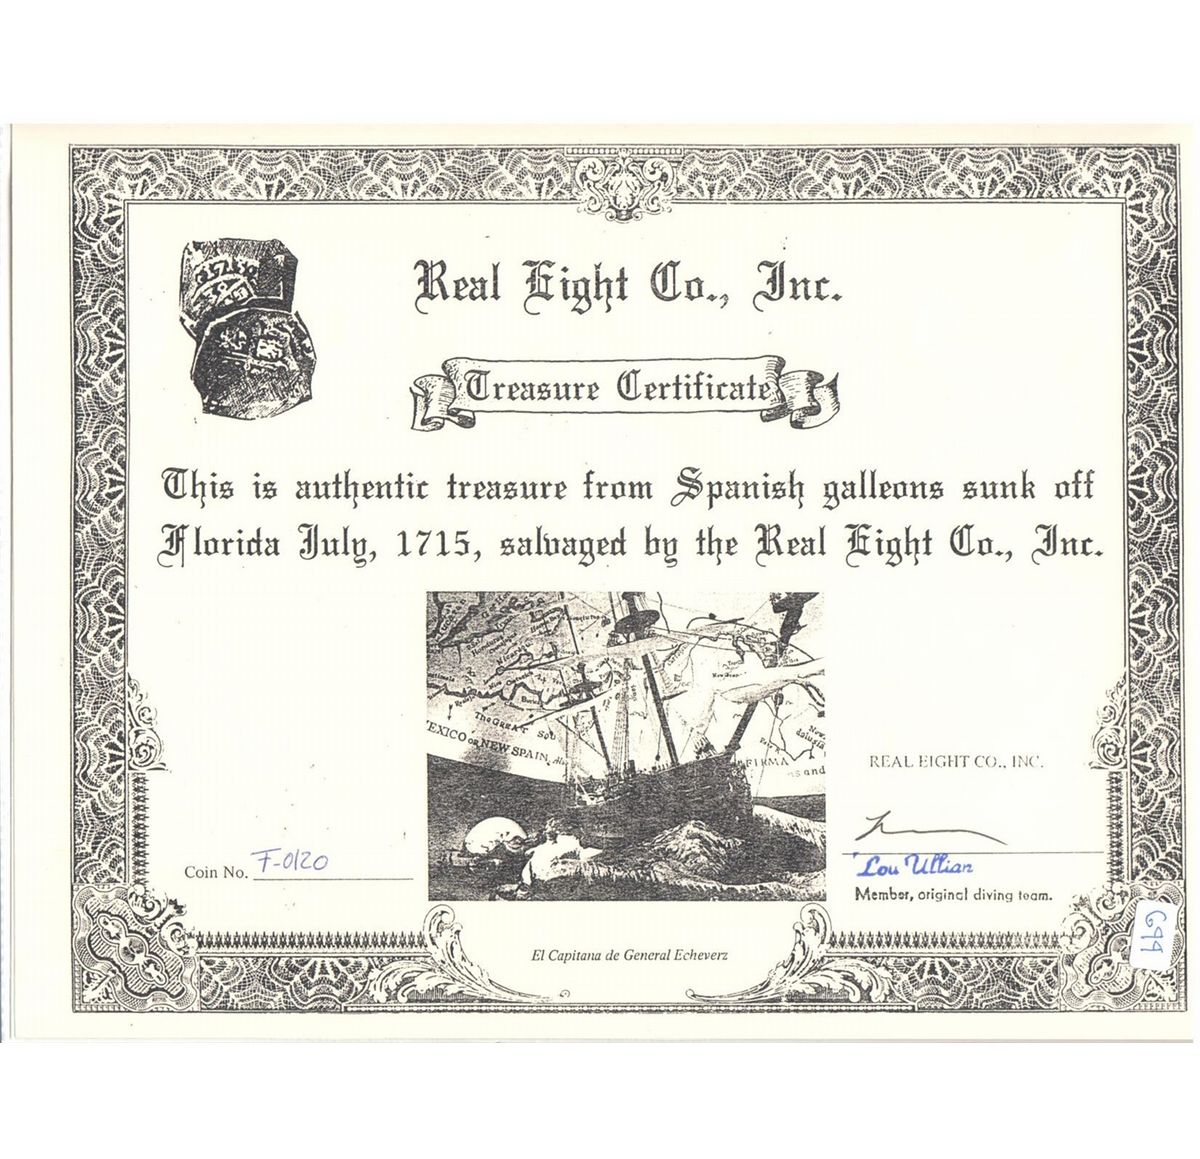 Real Eight Co., Inc.
Treasure Certificate
This is authentic treasure from Spanish galleons sunk off
Florida July, 1715, salvaged by the Real Eight Co., Inc.
The GREAT SOU
EXICO or NEW SPAIN,
FIRMA
REAL EIGHT CO., INC.
Coin No. F-0120
Lou Ullian
Member, original diving team.
El Capitana de General Echeverz
G99